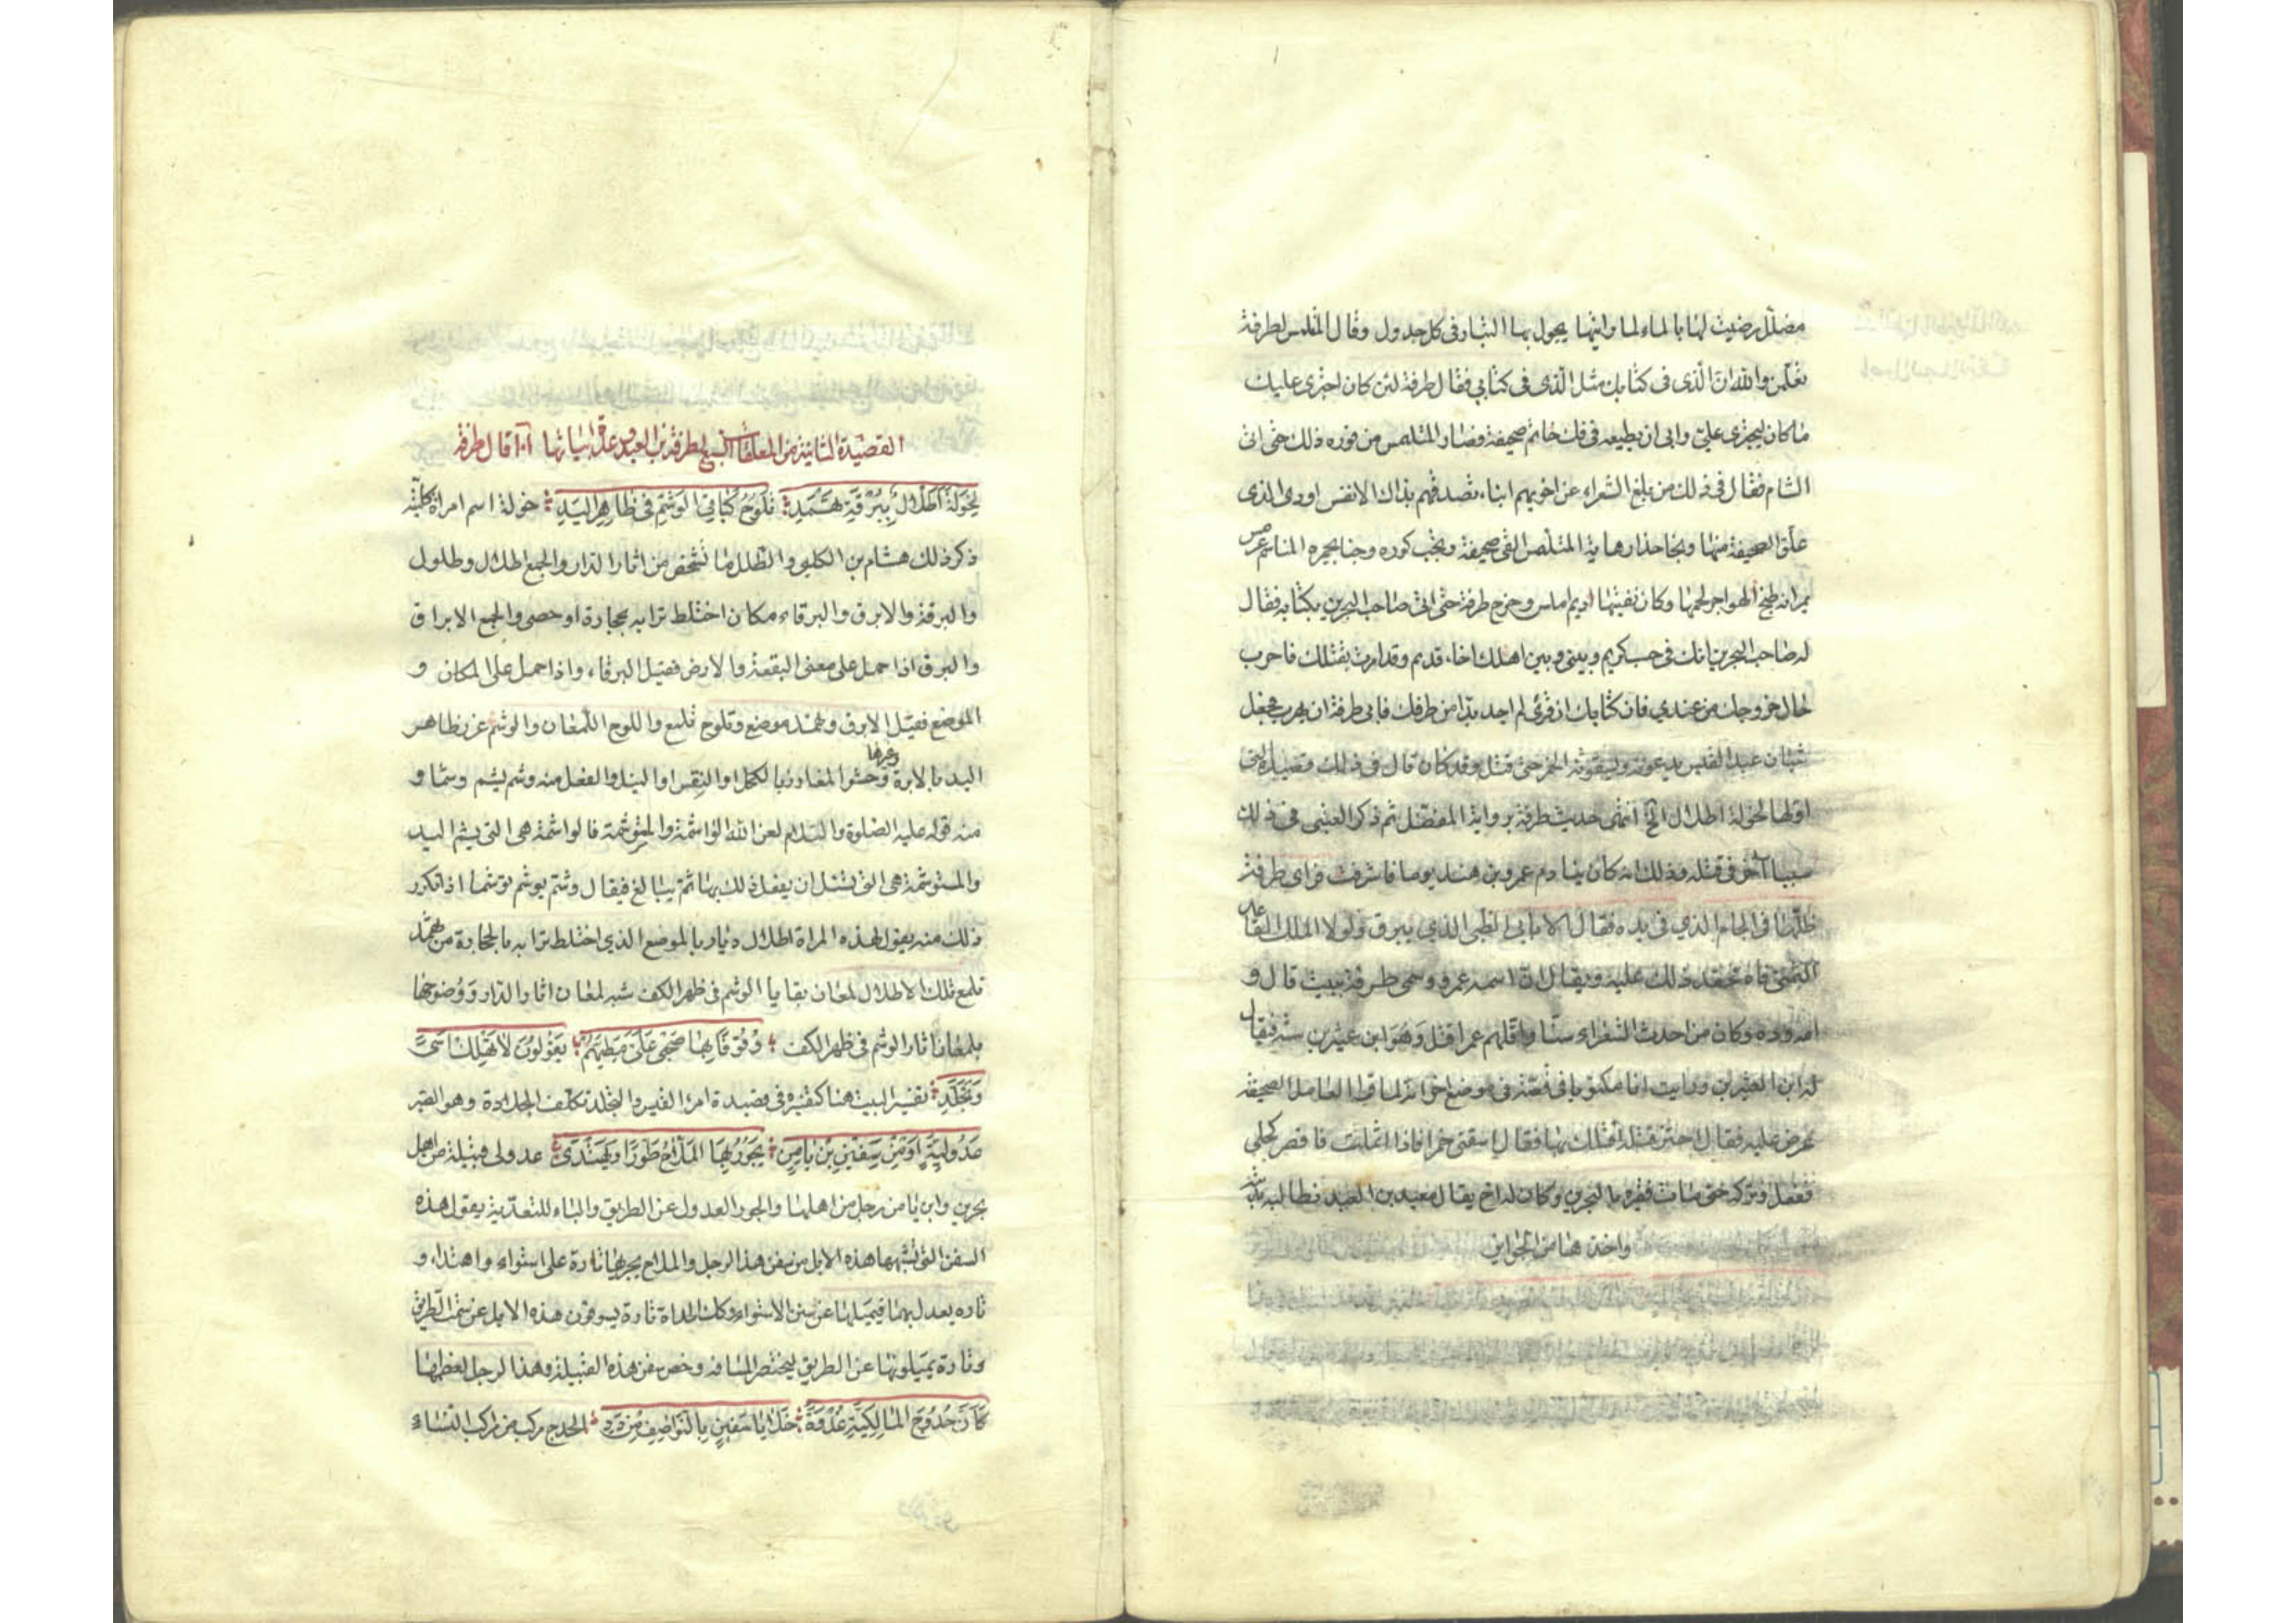 مضلل رضيت لها بالماء لما رايتها يجول بها التيار في كل جدول وقال المتلمس لطرفة
تعلمن والله ان الذي في كتابك مثل الذي في كتابي فقال طرفة لئن كان اجترى عليك
ما كان ليجترى علي وابى ان يطيعه في فك خاتم صحيفة فصار المتلمس من فوره ذلك حتى اتى
الشام فقال في ذلك من مبلغ الشعراء عن اخويهم ابناء تصدقهم بذاك الانفس اودى الذي
علق الصحيفة منهما ونجا حذار المتلمس القى صحيفة ونجت كوره
طبخ الهواجر لحمها وكان نقبتها اديم املس وخرج طرفة حتى اتى صاحب البحرين بكتابه فقال
له صاحب البحرين انك في حسب كريم وبيني وبين اهلك اخاء قديم وقد امرت بقتلك فاهرب
اذا خروجك من عندي فان كتابك ان قرئ لم اجد بدا من قتلك فابى طرفة ان يهرب فجعل
شبان عبد القيس يدعونه ويسقونه الخمر حتى قتل وقد كان قال في ذلك قصيدة التي
اولها لخولة اطلال الخ انتهى حديث طرفة برواية المفضل ثم ذكر العتبي في ذلك
سببا آخر في قتله وذلك انه كان ينادم عمرو بن هند يوما فاشرفت فراى طرفة
ظلها في الجام الذي في يده فقال الا بابي الظبي الذي يبرق ولولا الملك القاعد
الثمني فاه فحقد ذلك عليه ويقال ان اسمه عمرو وسمي طرفة ببيت قال و
وكان من احدث الشعراء سنا واقلهم عمرا قتل وهو ابن عشرين سنة فيقال
له ابن العشرين ورايت انا مكتوبا في قصته في موضع اخر انه لما قرا العامل الصحيفة
عرض عليه فقال اختر قتلة اقتلك بها فقال اسقني خمرا فاذا اثملت فافصد اكحلي
ففعل وتركه حتى مات فقبره بالبحرين وكان له اخ يقال معبد بن العبد فطالب بديته
واخذها من الحواثر
القصيدة الثانية من المعلقات السبع لطرفة بن العبد وعدة ابياتها قال طرفة
لِخَوْلَةَ اَطْلَالٌ بِبُرْقَةِ ثَهْمَدِ تَلُوحُ كَبَاقِي الْوَشْمِ فِي ظَاهِرِ الْيَدِ خولة اسم امراة كلبية
ذكر ذلك هشام بن الكلبي والطلل ما شخص من اثار الدار والجمع اطلال وطلول
والبرقة والابرق والبرقاء مكان اختلط ترابه بحجارة او حصى والجمع الابراق
والبرق اذا حمل على معنى البقعة والارض فقيل البرقاء واذا حمل على المكان و
الموضع فقيل الابرق وثهمد موضع وتلوح تلمع واللوح اللمعان والوشم غرز ظاهر
اليد وغيرها بالابرة وحشوا المغارز بالكحل او النقس او النيل والفعل منه وشم يشم وشما و
منه قوله عليه الصلوة والسلام لعن الله الواشمة والمستوشمة فالواشمة هي التي يشم اليد
والمستوشمة هي التي تسئل ان يفعل ذلك بها ثم يبالغ فيقال وشم يوشم توشيما اذا تكرر
ذلك منه يقول لهذه المراة اطلال ديار بالموضع الذي اختلط ترابه بالحجارة من ثهمد
تلمع تلك الاطلال لمعان بقايا الوشم في ظهر الكف شبه لمعان اثار الدار ووضوحها
بلمعان اثار الوشم في ظهر الكف وُقُوفًا بِهَا صَحْبِي عَلَيَّ مَطِيَّهُمْ يَقُولُونَ لَا تَهْلِكْ اَسًى
وَتَجَلَّدِ تفسير البيت هنا كتفسيره في قصيدة امرا القيس والتجلد تكلف الجلادة وهو الصبر
عَدُولِيَّةٌ اَوْ مِنْ سَفِينِ بْنِ يَامِنٍ يَجُورُ بِهَا الْمَلَّاحُ طَوْرًا وَيَهْتَدِي عدولى قبيلة من اهل
بحرين وابن يامن رجل من اهلها والجور العدول عن الطريق والباء للتعدية يقول هذه
السفن التي تشبهها هذه الابل من سفن هذا الرجل والملاح يجريها تارة على استواء واهتداء و
تاره يعدل بها فيميلها عن سنن الاستواء وكذلك الحداة تارة يسوقون هذه الابل عن سمت الطريق
وتارة يميلونها عن الطريق ليختصر المسافه وخص سفن هذه القبيلة وهذا الرجل لعظمها
كَاَنَّ حُدُوجَ الْمَالِكِيَّةِ غُدْوَةً خَلَايَا سَفِينٍ بِالنَّوَاصِفِ مِنْ دَدِ الحدج مركب من مراكب النساء